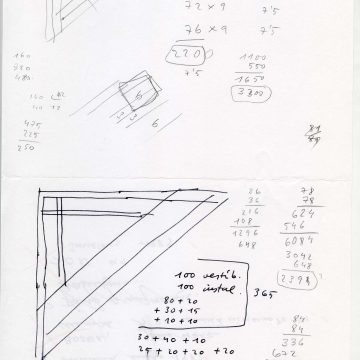 72 x 9 7'5
76 x 9 7'5
220
7'5
1100
550
1650
3300
160
220
480
160
40 12
475
225
250
6
3 3 6
81
26
36
216
108
1296
648
78
78
624
546
6084
3042
648
100 vestib.
100 instal.
80 + 20
+ 30 + 15
+ 10 + 10
365
30 + 40 + 10
25 + 20 + 20 + 20
84
84
336
672